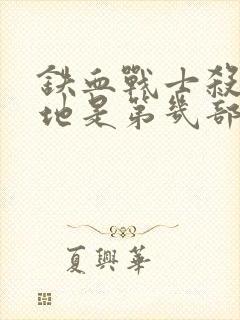 鉄血戰士殺
地是第幾部
夏興華